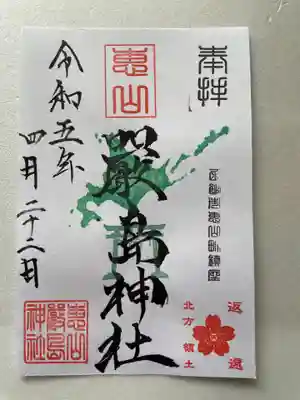 奉拝
函館市恵山町鎮座
返還
北方領土
惠山
厳島神社
令和五年
四月二十八日
惠山
嚴島
神社